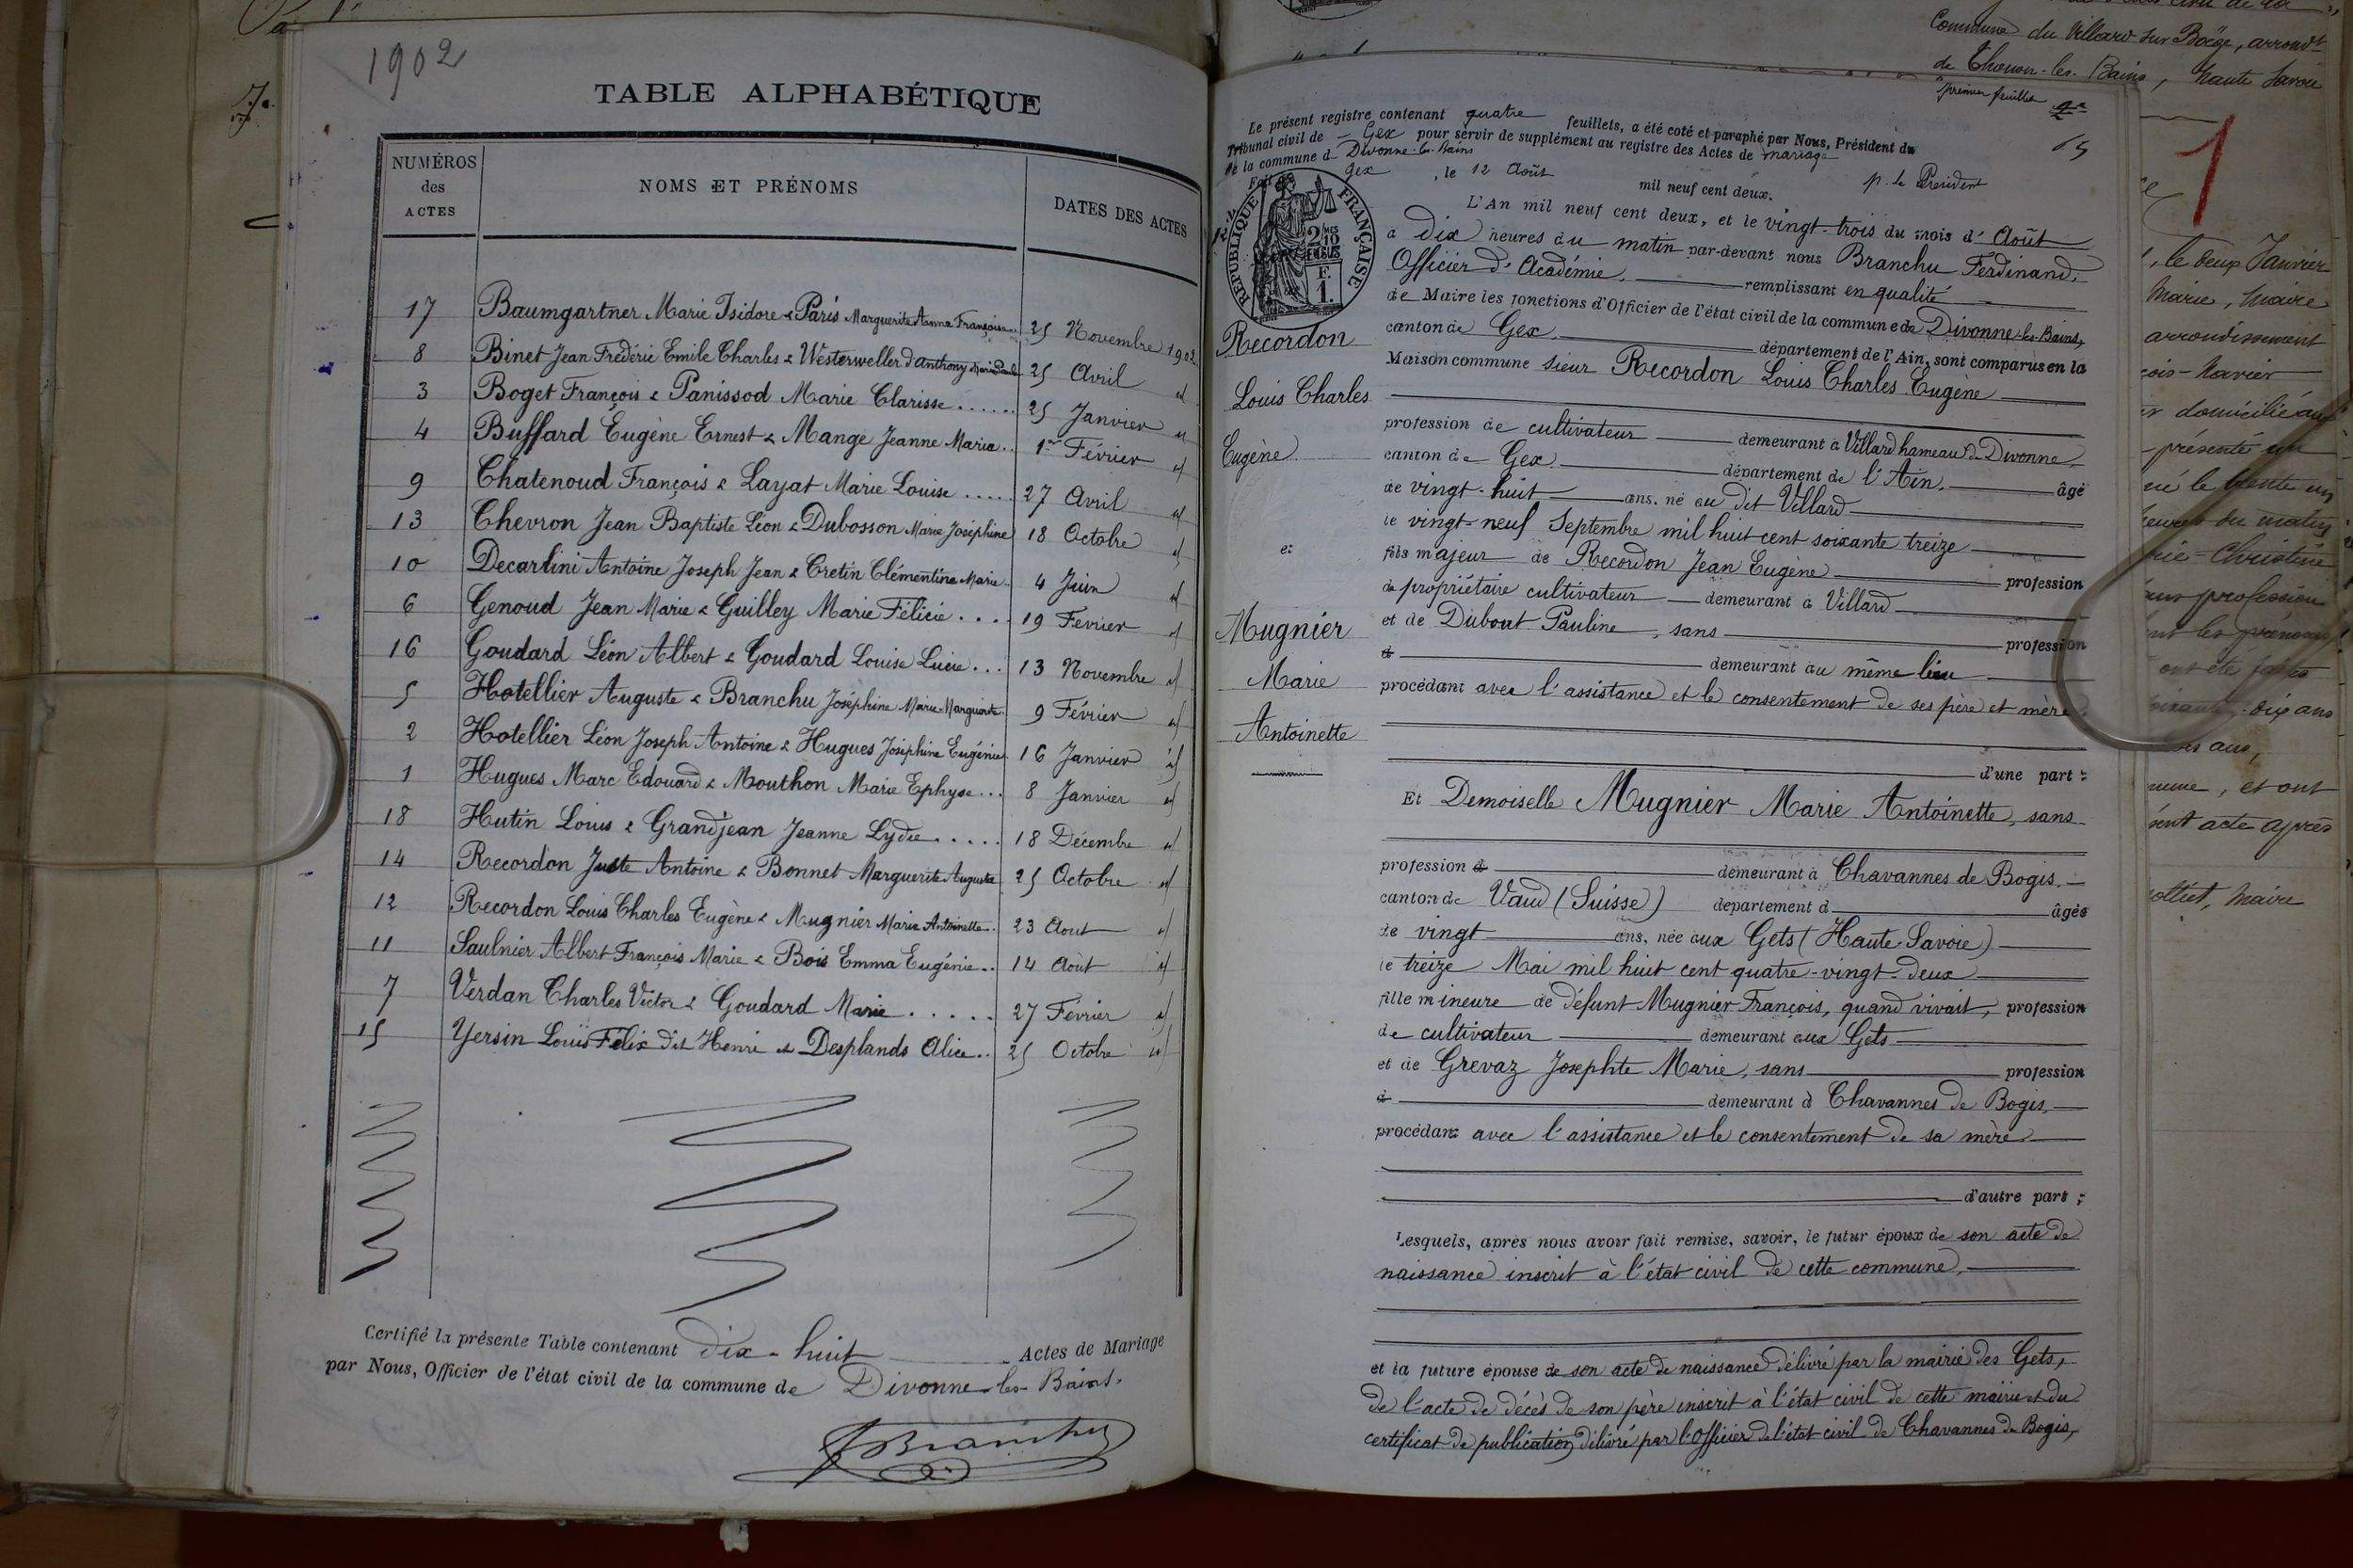 1902
TABLE ALPHABÉTIQUE
NUMÉROS des ACTES
NOMS ET PRÉNOMS
DATES DES ACTES
17 Baumgartner Marie Isidore & Paris Marguerite Anna Françoise.. 25 Novembre 1902
8 Binet Jean Frédéric Emile Charles & Westerweller d'Anthony Marie Paule 25 Avril id
3 Boget François & Panissod Marie Clarisse...... 25 Janvier id
4 Buffard Eugène Ernest & Mange Jeanne Maria.. 1er Février id
9 Chatenoud François & Layat Marie Louise..... 27 Avril id
13 Chevron Jean Baptiste Léon & Dubosson Marie Joséphine 18 Octobre id
10 Decarlini Antoine Joseph Jean & Cretin Clémentine Marie.. 4 Juin id
6 Genoud Jean Marie & Guilley Marie Félicie.... 19 Février id
16 Goudard Léon Albert & Goudard Louise Lucie... 13 Novembre id
5 Hotellier Auguste & Branchu Joséphine Marie Marguerite. 9 Février id
2 Hotellier Léon Joseph Antoine & Hugues Joséphine Eugénie. 16 Janvier id
1 Hugues Marc Edouard & Mouthon Marie Ephyse... 8 Janvier id
18 Hutin Louis & Grandjean Jeanne Lydie..... 18 Décembre id
14 Recordon Juste Antoine & Bonnet Marguerite Augusta 25 Octobre id
12 Recordon Louis Charles Eugène & Mugnier Marie Antoinette.. 23 Aout id
11 Saulnier Albert François Marie & Bois Emma Eugénie.. 14 Août id
7 Verdan Charles Victor & Goudard Marie..... 27 Février id
15 Yersin Louis Félix dit Henri et Desplands Alice.. 25 Octobre id
Certifié la présente Table contenant dix-huit Actes de Mariage
par Nous, Officier de l'état civil de la commune de Divonne-les-Bains.
Branchu
Commune du Villard sur Boëge, arrondt
de Thonon-les-Bains, haute Savoie
premier feuillet
Le présent registre contenant quatre feuillets, a été coté et paraphé par Nous, Président du
Tribunal civil de Gex pour servir de supplément au registre des Actes de mariage
de la commune d Divonne-les-Bains
Fait à Gex, le 12 Août mil neuf cent deux. p. le Président
RÉPUBLIQUE FRANÇAISE
L'An mil neuf cent deux, et le vingt-trois du mois d'Août
a dix heures du matin par-devant nous Branchu Ferdinand,
Officier d'Académie, remplissant en qualité
de Maire les fonctions d'Officier de l'état civil de la commune de Divonne-les-Bains,
canton de Gex, département de l'Ain, sont comparus en la
Maison commune sieur Recordon Louis Charles Eugène
profession de cultivateur demeurant à Villard hameau de Divonne,
canton de Gex, département de l'Ain, âgé
de vingt-huit ans, né au dit Villard
le vingt-neuf Septembre mil huit cent soixante treize
fils majeur de Recordon Jean Eugène profession
de propriétaire cultivateur demeurant à Villard
et de Dubout Pauline, sans profession
d demeurant au même lieu
procédant avec l'assistance et le consentement de ses père et mère.
d'une part;
Et Demoiselle Mugnier Marie Antoinette, sans
profession d demeurant à Chavannes de Bogis.
canton de Vaud (Suisse) département d âgée
de vingt ans, née aux Gets (Haute-Savoie)
le treize Mai mil huit cent quatre-vingt-deux
fille mineure de défunt Mugnier François, quand vivait, profession
de cultivateur demeurant aux Gets
et de Grevaz Josephte Marie, sans profession
d demeurant à Chavannes de Bogis,
procédant avec l'assistance et le consentement de sa mère
d'autre part;
Lesquels, après nous avoir fait remise, savoir, le futur époux de son acte de
naissance inscrit à l'état civil de cette commune,
et la future épouse de son acte de naissance délivré par la mairie des Gets,
de l'acte de décès de son père inscrit à l'état civil de cette mairie et du
certificat de publication délivré par l'Officier de l'état civil de Chavannes de Bogis,
Recordon
Louis Charles
Eugène
et
Mugnier
Marie
Antoinette
1
, le deux Janvier
Marie, Maire
arrondissement
domicilié au
présenté un
heures du matin
Christine
profession
les prénoms
ont été faites
dix ans
ans,
, et ont
acte après
, maire